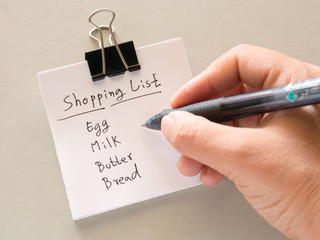 Shopping List
Egg
Milk
Butter
Bread